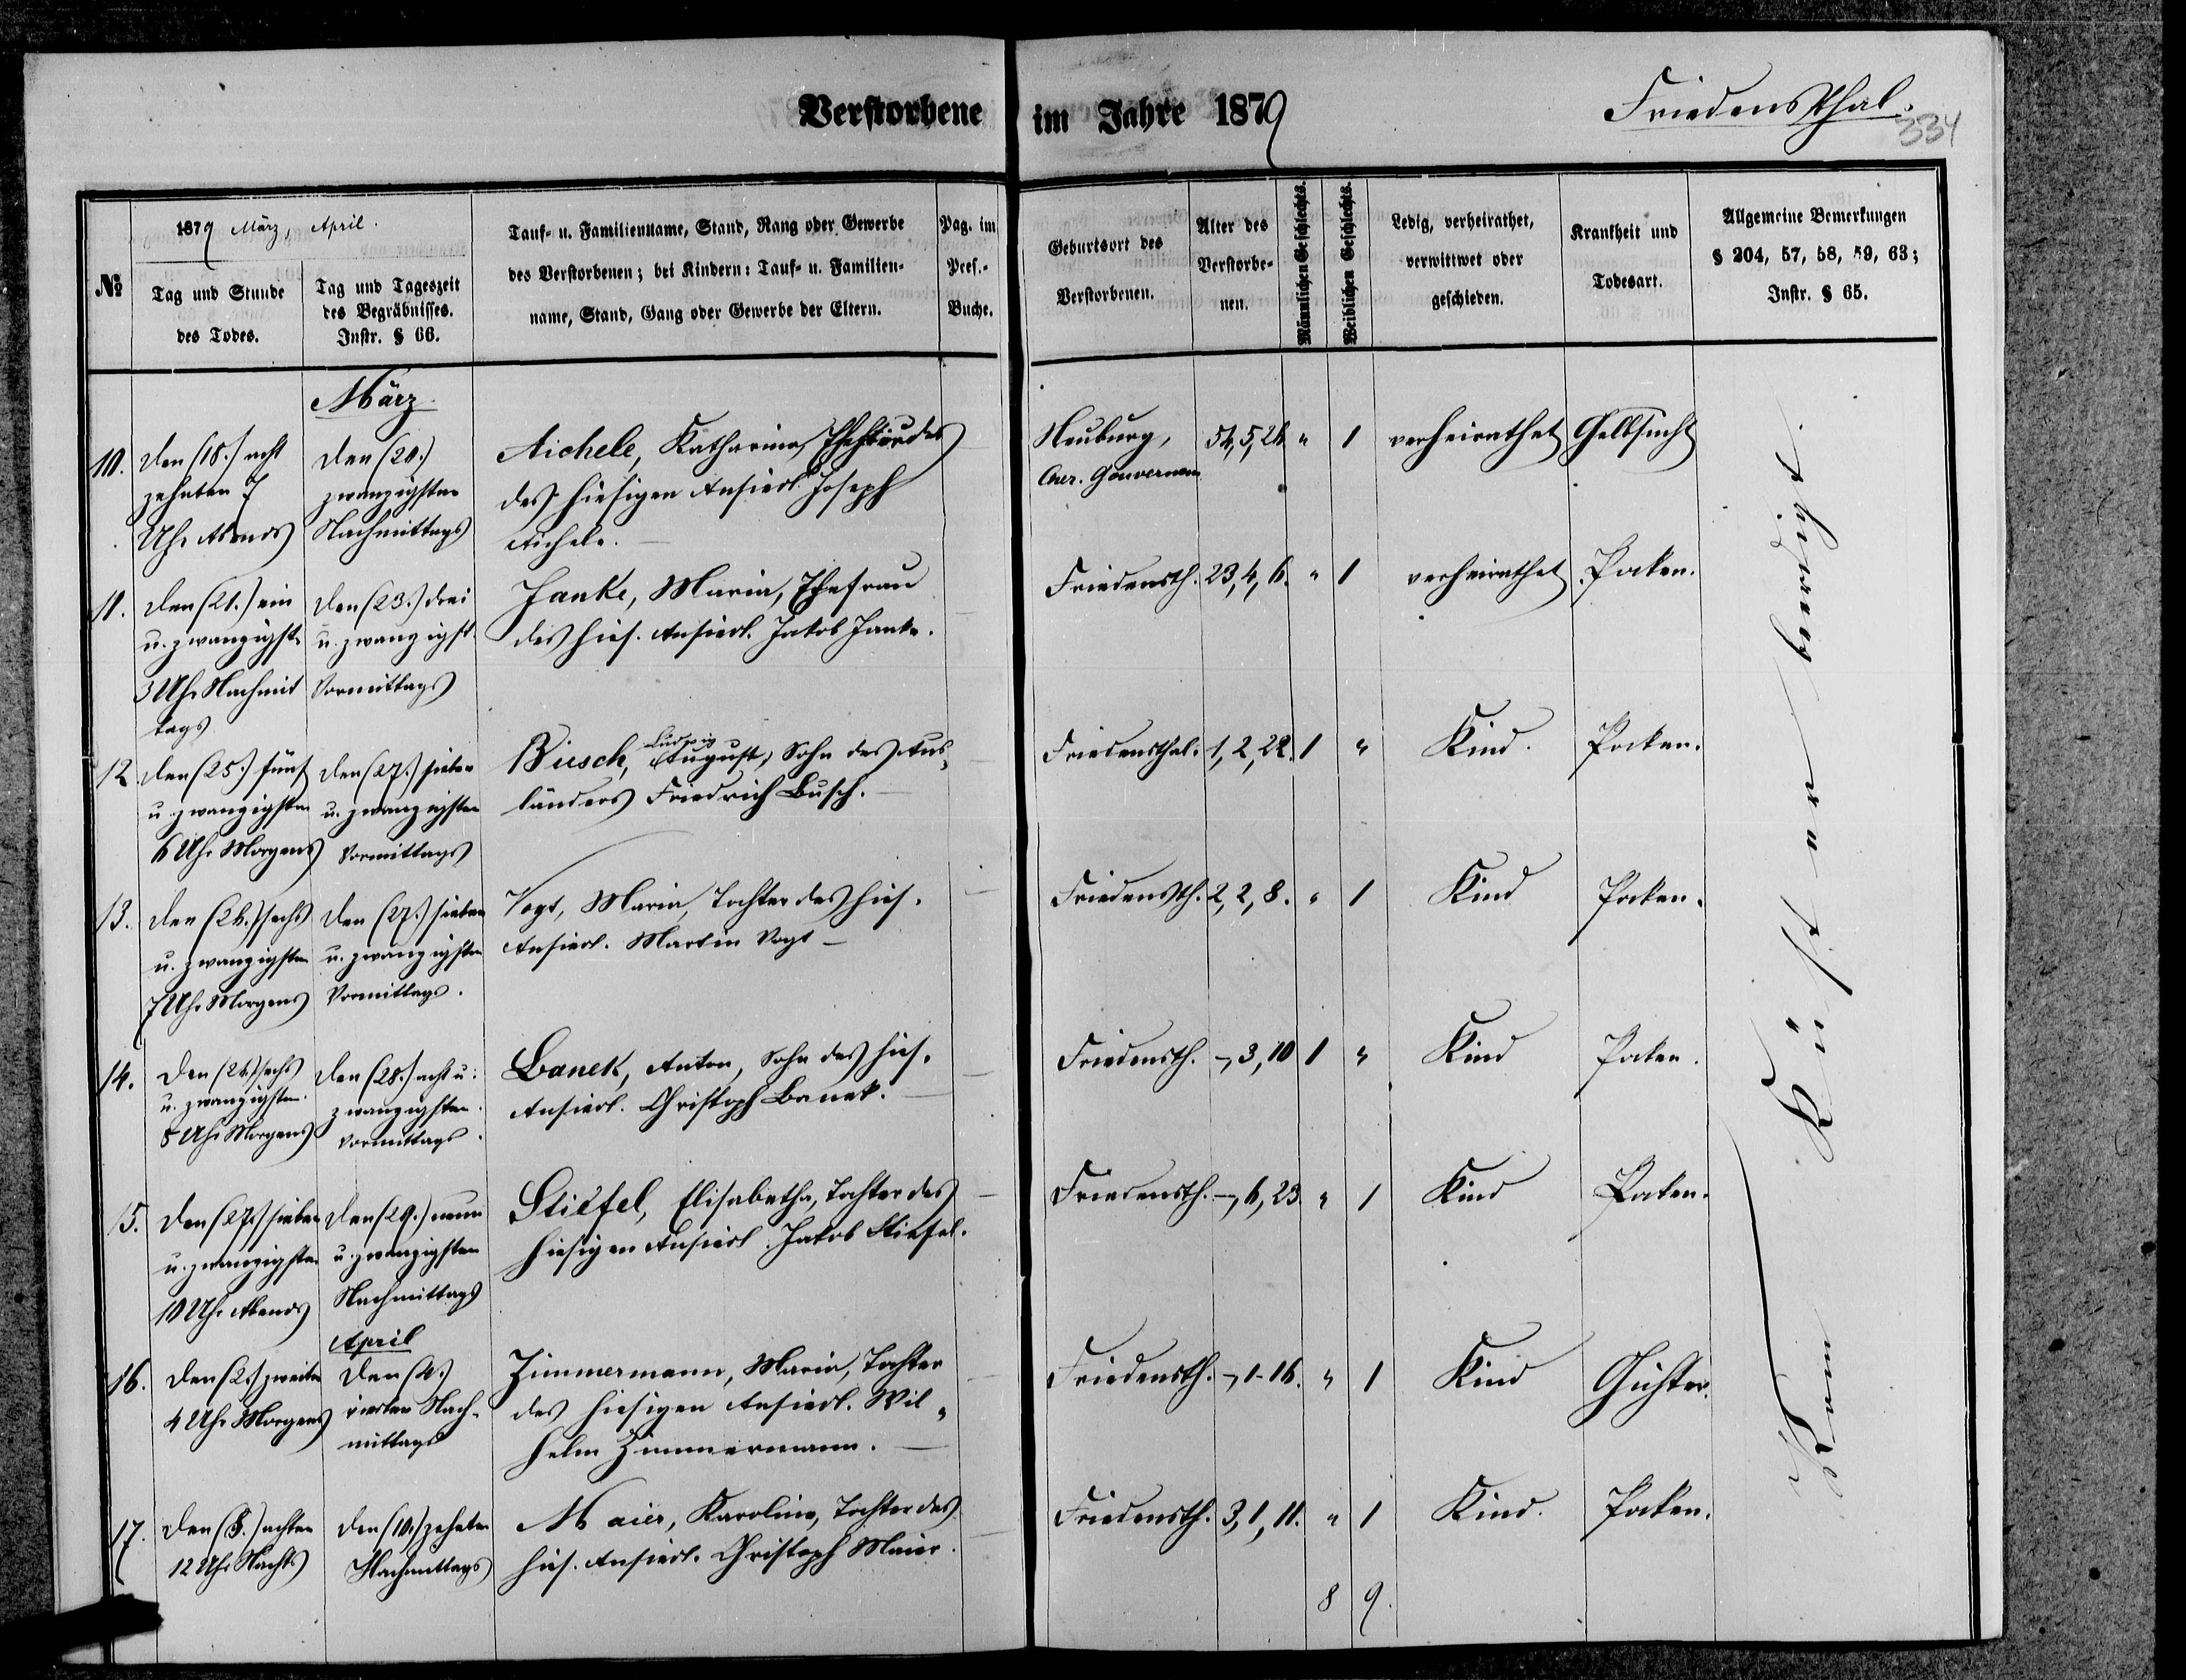 Verstorbene im Jahre 1879
Friedensthal.
334
№
1879 März, April.
Tag und Stunde
des Todes.
Tag und Tageszeit
des Begräbnisses.
Instr. § 66.
Tauf- u. Familienname, Stand, Rang oder Gewerbe
des Verstorbenen; bei Kindern: Tauf- u. Familien-
name, Stand, Gang oder Gewerbe der Eltern.
Pag. im
Pers.-
Buche.
Geburtsort des
Verstorbenen.
Alter des
Verstorbe-
nen.
Männlichen Geschlechts.
Weiblichen Geschlechts.
Ledig, verheirathet,
verwittwet oder
geschieden.
Krankheit und
Todesart.
Allgemeine Bemerkungen
§ 204, 57, 58, 59, 63;
Instr. § 65.
März
10.
den (18.) acht
zehnten 7
Uhr Abends
den (20.)
zwanzigsten
Nachmittags
Aichele, Katharina,
des hiesigen Ansiedl. Joseph
Aichele.
Neuburg,
Cher. Gouvernem
54, 5, 24 " 1 verheirathet Gelbsucht
11.
den (21.) ein
u. zwanzigste
3 Uhr Nachmit
tags
den (23.) drei
u. zwanzigst.
Vormittags
Janke, Maria, Ehefrau
des hies. Ansiedl. Jakob Janke.
Friedensth. 23, 4, 6. " 1 verheirathet Pocken.
12
den (25.) fünf
u. zwanzigsten
6 Uhr Morgens
den (27.) sieben
u. zwanzigsten
Vormittags
Ludwig
Busch, August, Sohn des Aus„
länders Friedrich Busch.
Friedensthal. 1, 2, 22. 1 " Kind. Pocken.
13.
den (26.) sechs
u. zwanzigsten
7 Uhr Morgens
den (27.) sieben
u. zwanzigsten
Vormittags.
Vogt, Maria, Tochter des hies.
Ansiedl. Martin Vogt
Friedensth. 2, 2, 8. " 1 Kind Pocken.
14.
den (26.) sechs
u. zwanzigsten.
5 Uhr Morgens
den (28.) acht u:
zwanzigsten.
Vormittags.
Banek, Anton, Sohn des hies.
Ansiedl. Christoph Banek.
Friedensth. -, 3, 10 1 " Kind Pocken.
15.
den (27.) sieben
u. zwanzigsten
10 Uhr Abends
den (29.) neun
u. zwanzigsten
Nachmittags
Stiefel, Elisabetha, Tochter des
hiesigen Ansiedl. Jakob Stiefel.
Friedensth. -, 6, 23 " 1 Kind Pocken.
April
16.
den (2.) zweiten
4 Uhr Morgens
den (4.)
vierten Nach-
mittags
Zimmermann, Maria, Tochter
des hiesigen Ansiedl. Wil„
helm Zimmermann.
Friedensth. -, 1-16. " 1 Kind Gichter.
17.
den (8.) achten
12 Uhr Nachts
den (10.) zehnten
Nachmittags
Maier, Karolina, Tochter des
hies. Ansiedl. Christoph Maier.
Friedensth. 3, 1, 11. " 1 Kind. Pocken.
8 9.
Vom Küster beerdigt.